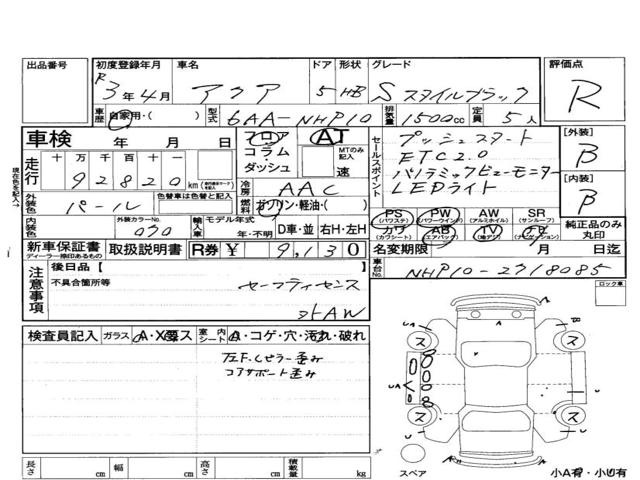 出品番号
初度登録年月 R 3年4月
車名 アクア
ドア 5
形状 HB
グレード Sスタイルブラック
評価点 R
車歴 自家用・( )
型式 6AA-NHP10
排気量 1500cc
定員 5人
車検 年 月 日
フロア・コラム・ダッシュ
AT
MTのみ記入 速
セールスポイント
プッシュスタート
ETC2.0
パノラミックビューモニター
LEDライト
[外装] B
[内装] B
現在色を記入→
走行 十万千百十一
92820km
冷房 AAC
外装色 パール
色替車は色替と記入
燃料 ガソリン・軽油・( )
PS (パワステ) PW (パワーウインド) AW (アルミホイル) SR (サンルーフ)
カワ (カワシート) AB (エアバック) TV (地デジ) (ナビゲーション)
純正品のみ丸印
内装色
外装カラーNo. 070
輸入車 モデル年式 年・不明
D車・並 右H・左H
新車保証書 ディーラー捺印あるもの
取扱説明書
R券 ¥ 9,130
名変期限 月 日迄
車台No. NHP10-2718085
注意事項
後日品[ ]
不具合箇所等
セーフティセンス
社外AW
ロック車
検査員記入 ガラス A・X要ス
室内シート A・コゲ・穴・汚れ・破れ
左F.Cピラー歪み
コアサポート歪み
UA A U
ス ス
UA
ス ス
U
スペア
小A有・小U有
長さ cm 幅 cm 高さ cm 積載量 kg